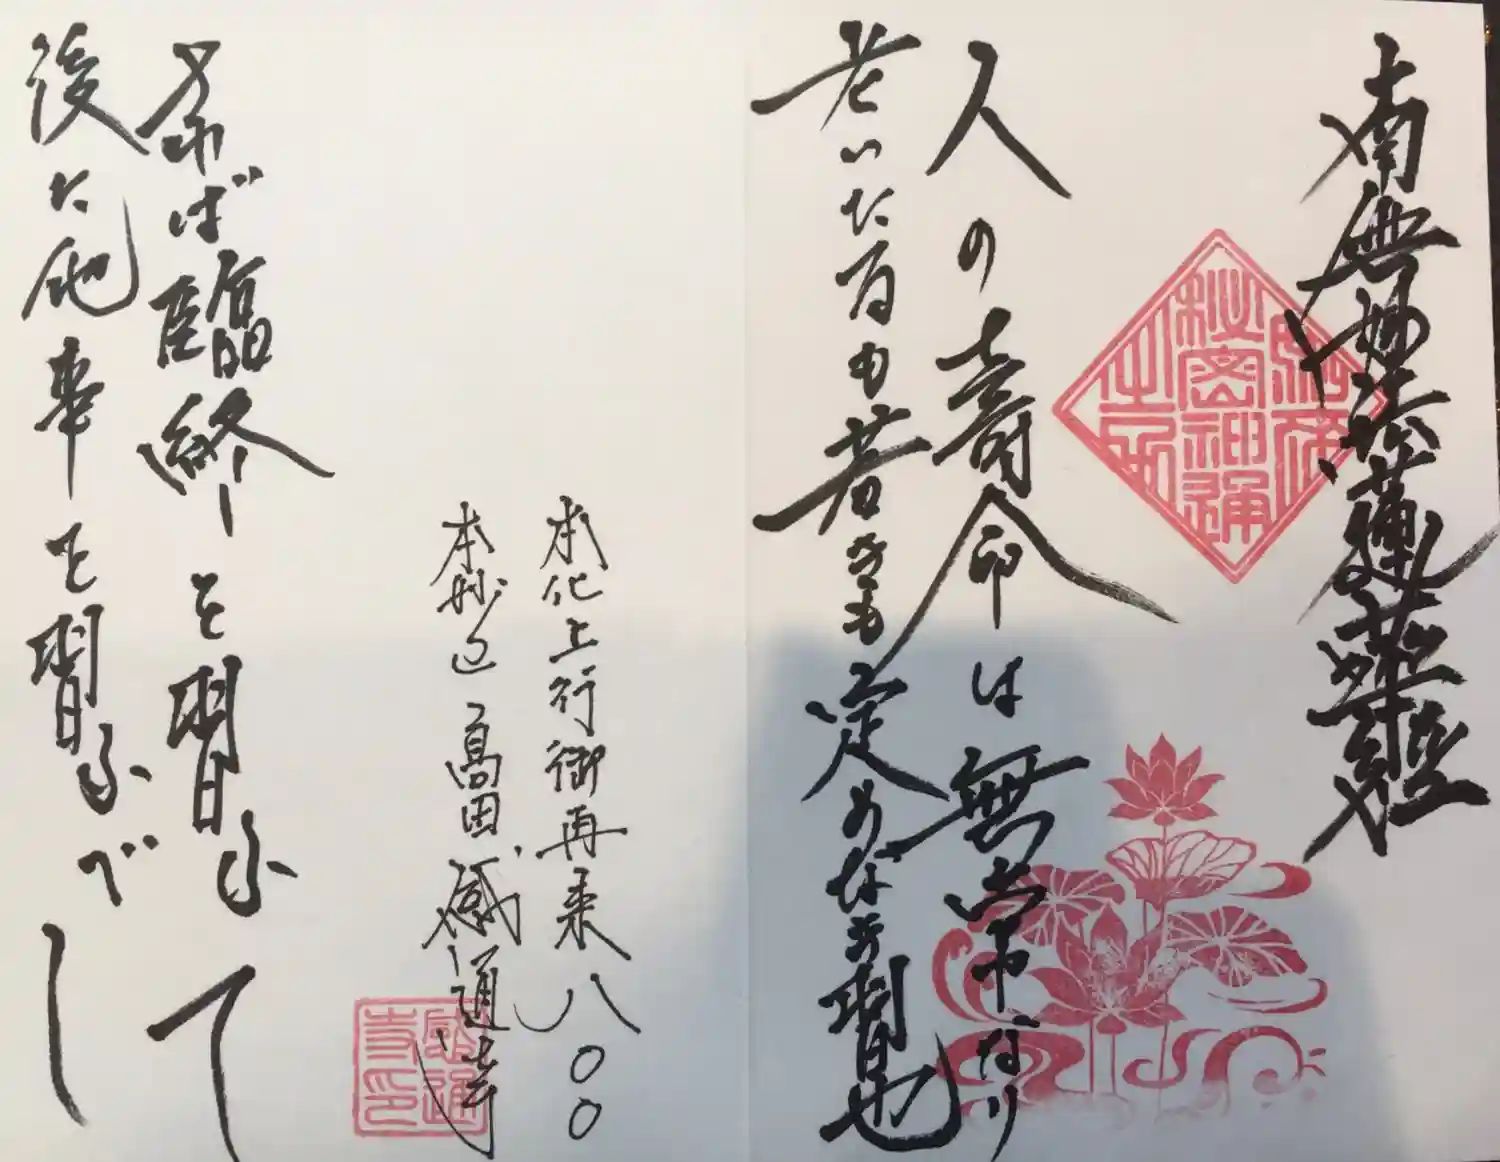 南無妙法蓮華経
人の寿命は無常なり
老いたるも若きも定めなき習也
本化上行御再来八〇〇
本妙 高田感通寺
夫れば臨終を習ふて
後に他事を習ふべし
如来
秘密神通
之力
感通
寺印